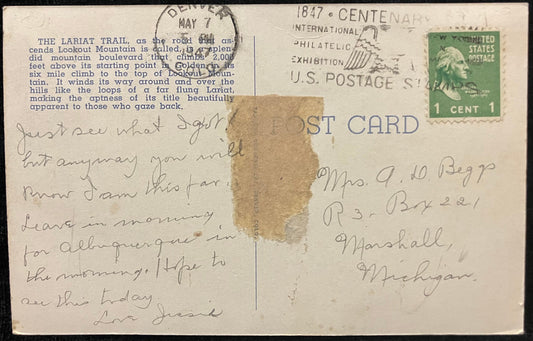 THE LARIAT TRAIL, as the road that as-
cends Lookout Mountain is called, is a splen-
did mountain boulevard that climbs 2,000
feet above its starting point in Golden in its
six mile climb to the top of Lookout Moun-
tain. It winds its way around and over the
hills like the loops of a far flung Lariat,
making the aptness of its title beautifully
apparent to those who gaze back.
DENVER
MAY 7
5 PM
1947
COLO.
1847 · CENTENARY
INTERNATIONAL
PHILATELIC
EXHIBITION
U.S. POSTAGE STAMPS
UNITED
STATES
POSTAGE
1 CENT 1
POST CARD
Just see what I got!
but anyway you will
know I am this far.
Leave in morning
for Albuquerque in
the morning. Hope to
see this today
Love Jessie
Mrs. A. D. Beggs
R 3 - Box 221
Marshall,
Michigan.